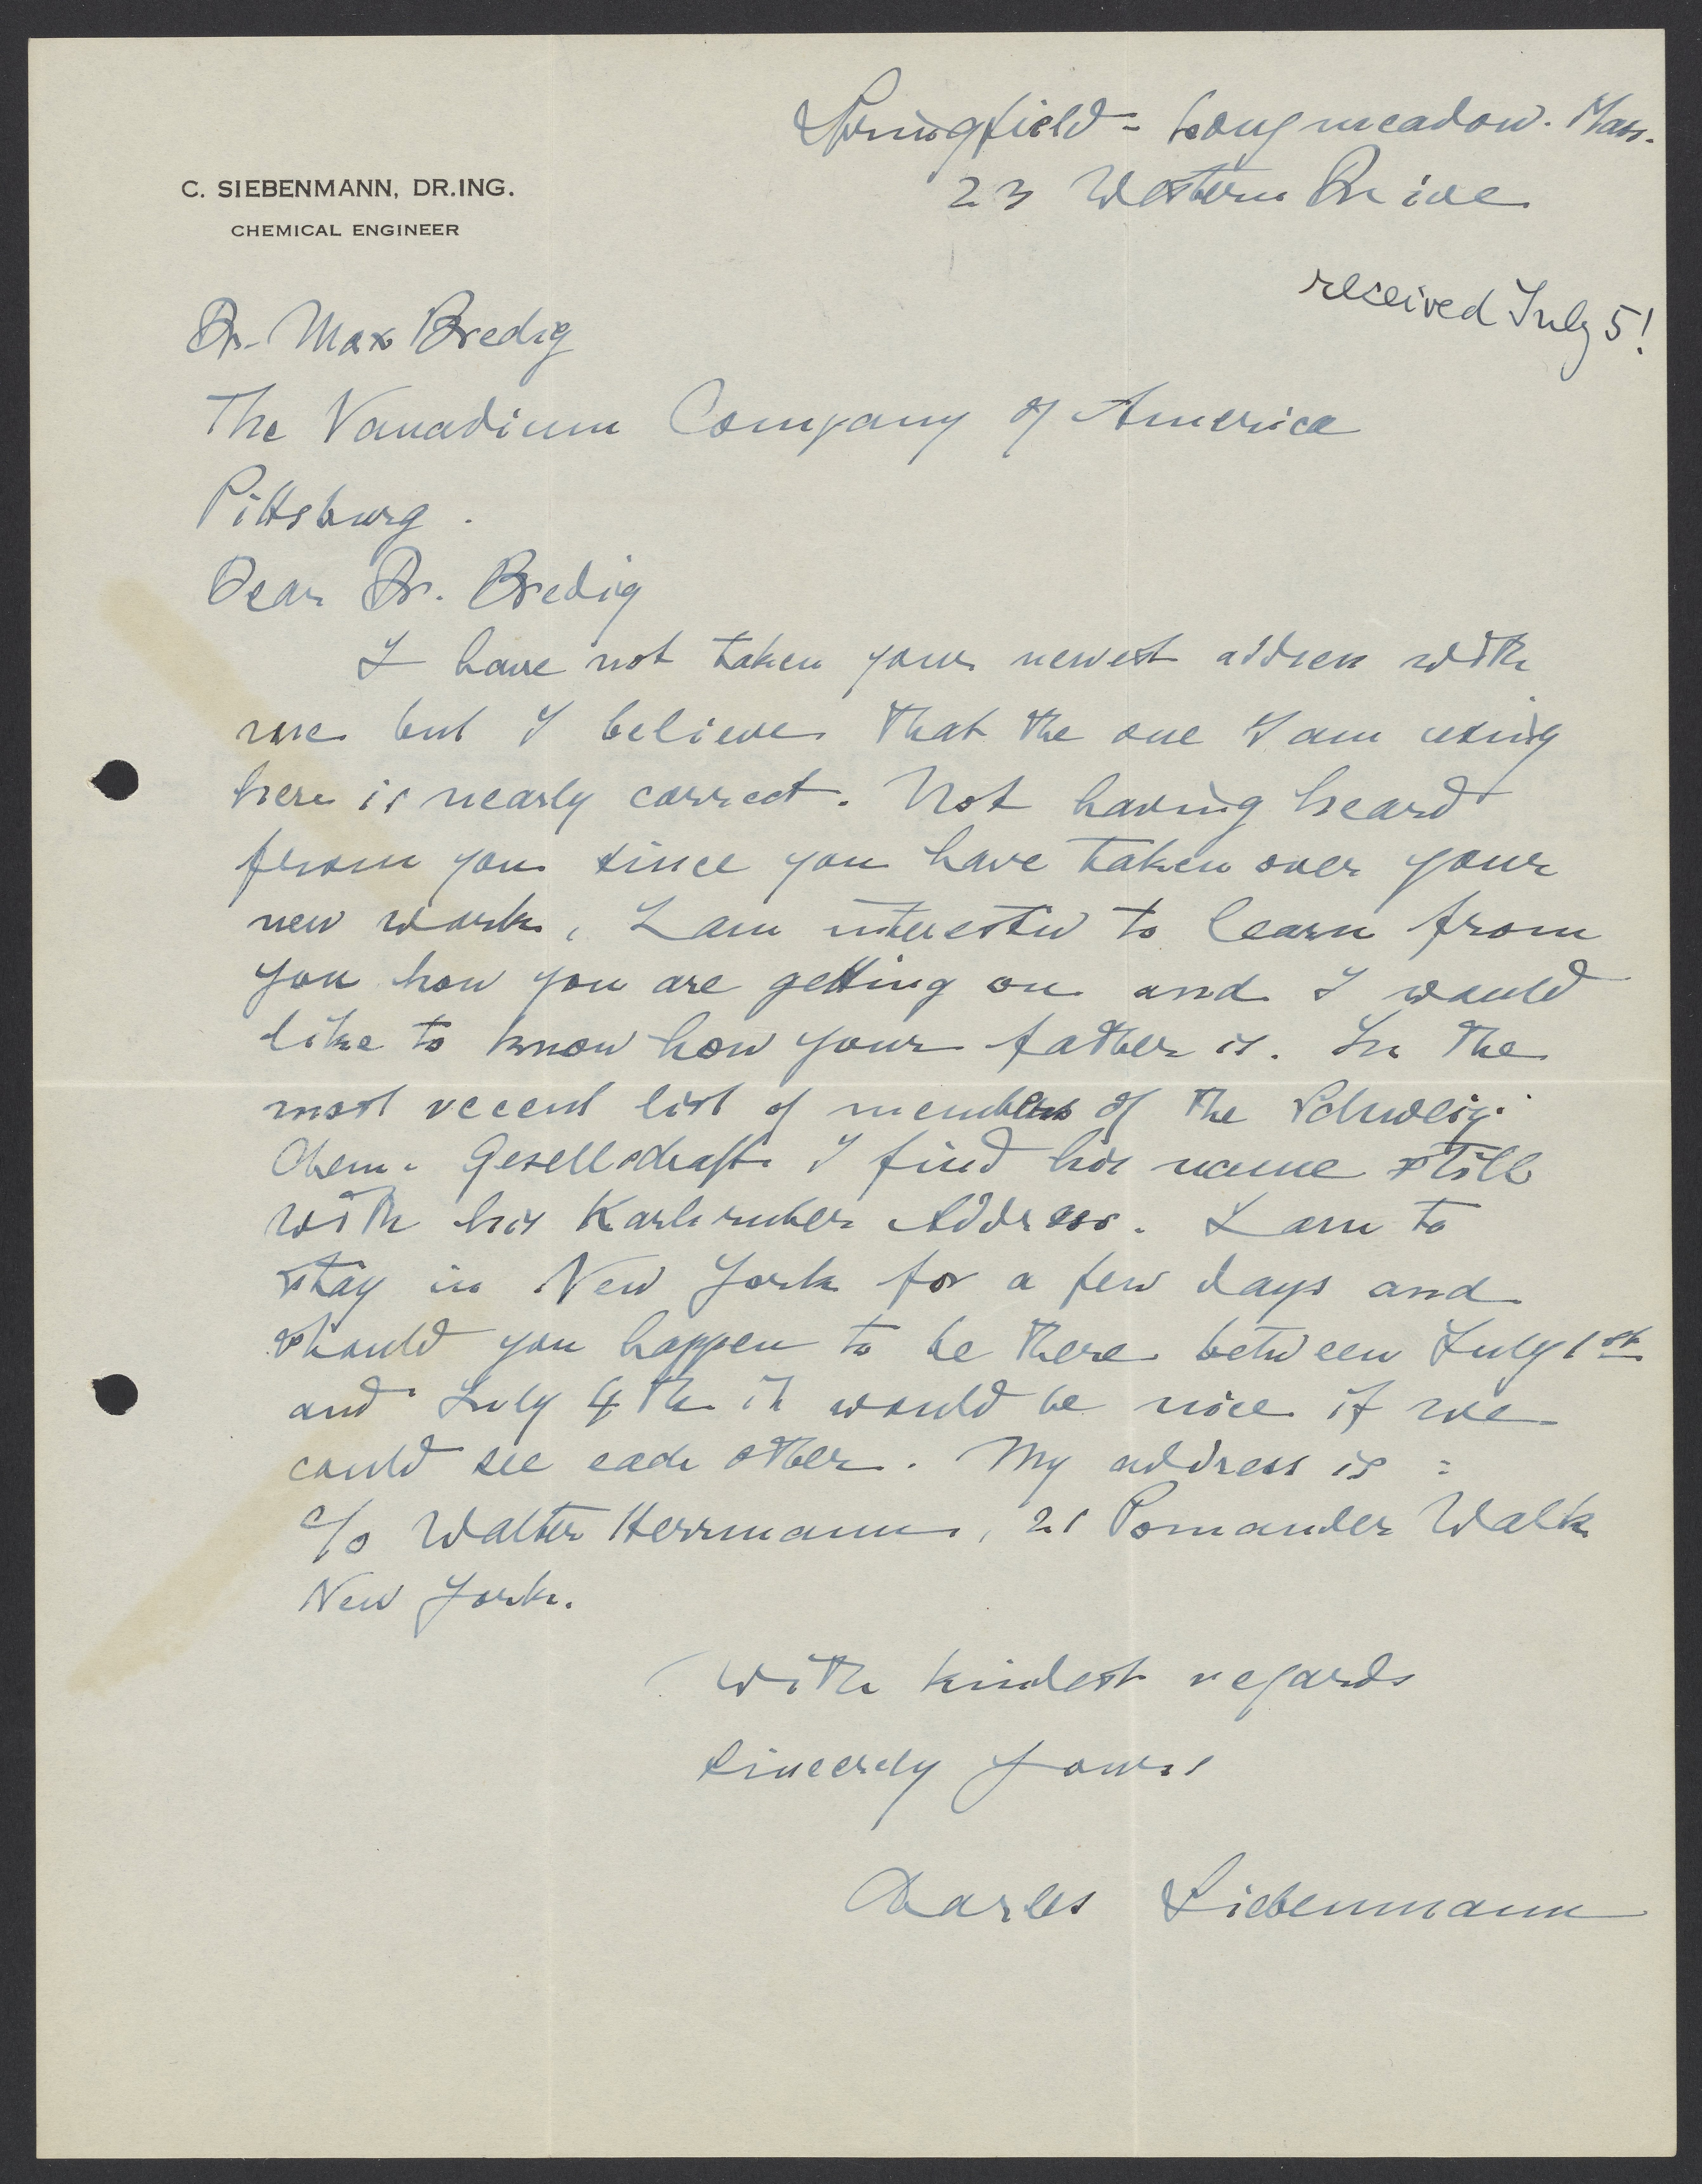 Springfield - Longmeadow. Mass.
23 Western Drive
C. SIEBENMANN, DR.ING.
CHEMICAL ENGINEER
received July 5!
Dr. Max Bredig
The Vanadium Company of America
Pittsburg.
Dear Dr. Bredig
I have not taken your newest address with
me but I believe that the one I am using
here is nearly correct. Not having heard
from you since you have taken over your
new work, I am interested to learn from
you how you are getting on and I would
like to know how your father is. In the
most recent list of members of the Schweiz.
Chem. Gesellschaft I find his name still
with his Karlsruher Address. I am to
stay in New York for a few days and
should you happen to be there between July 1st
and July 4th it would be nice if we
could see each other. My address is :
c/o Walter Herrmann, 21 Pomander Walk
New York.
With kindest regards
Sincerely yours
Charles Siebenmann